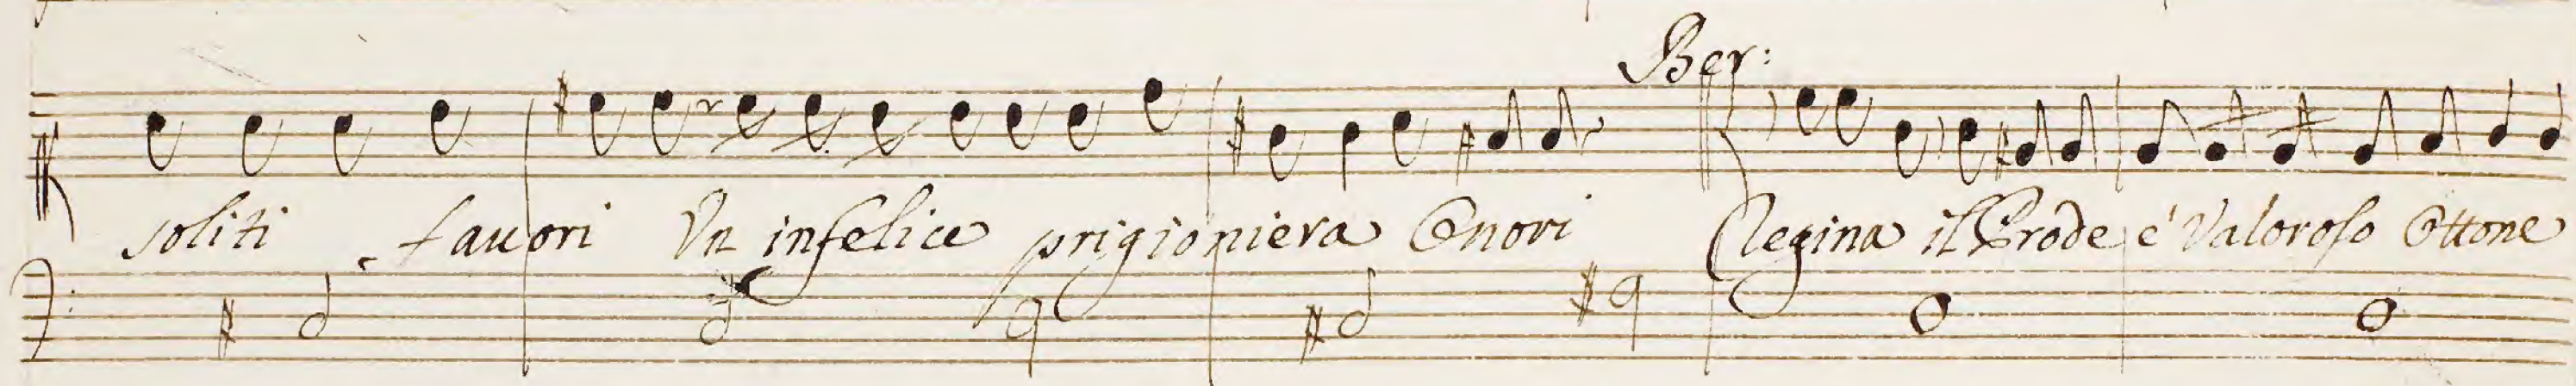 Ber:
soliti favori Un infelice prigioniera Onori Regina il Prode e' Valoroso Ottone